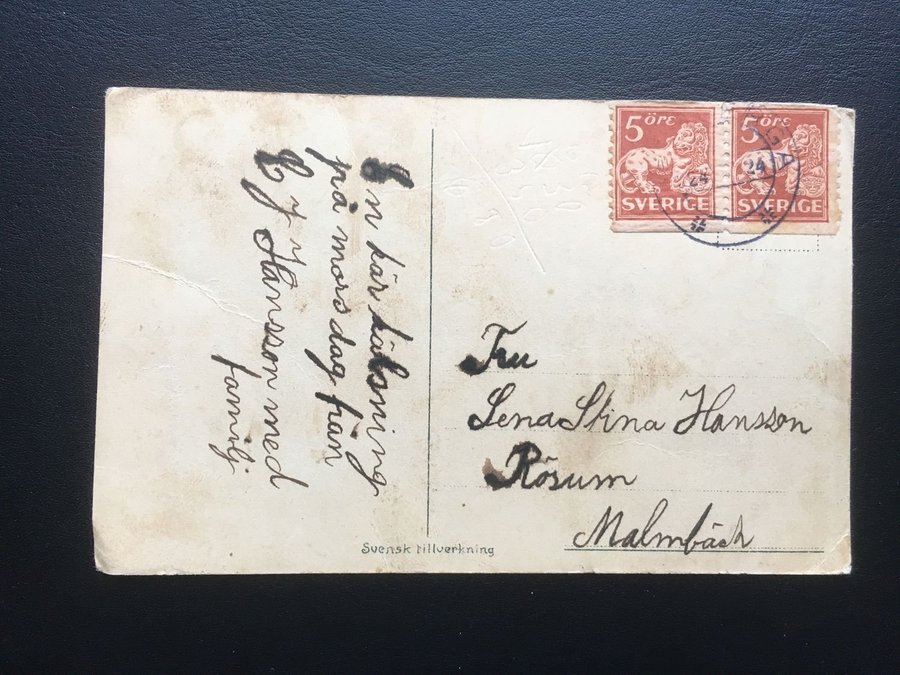 En kär hälsning
på mors dag från
E J Hansson med
familj
5 ÖRE
SVERIGE
5 ÖRE
SVERIGE
24
24
Fru
Lena Stina Hansson
Rösum
Malmbäck
Svensk tillverkning